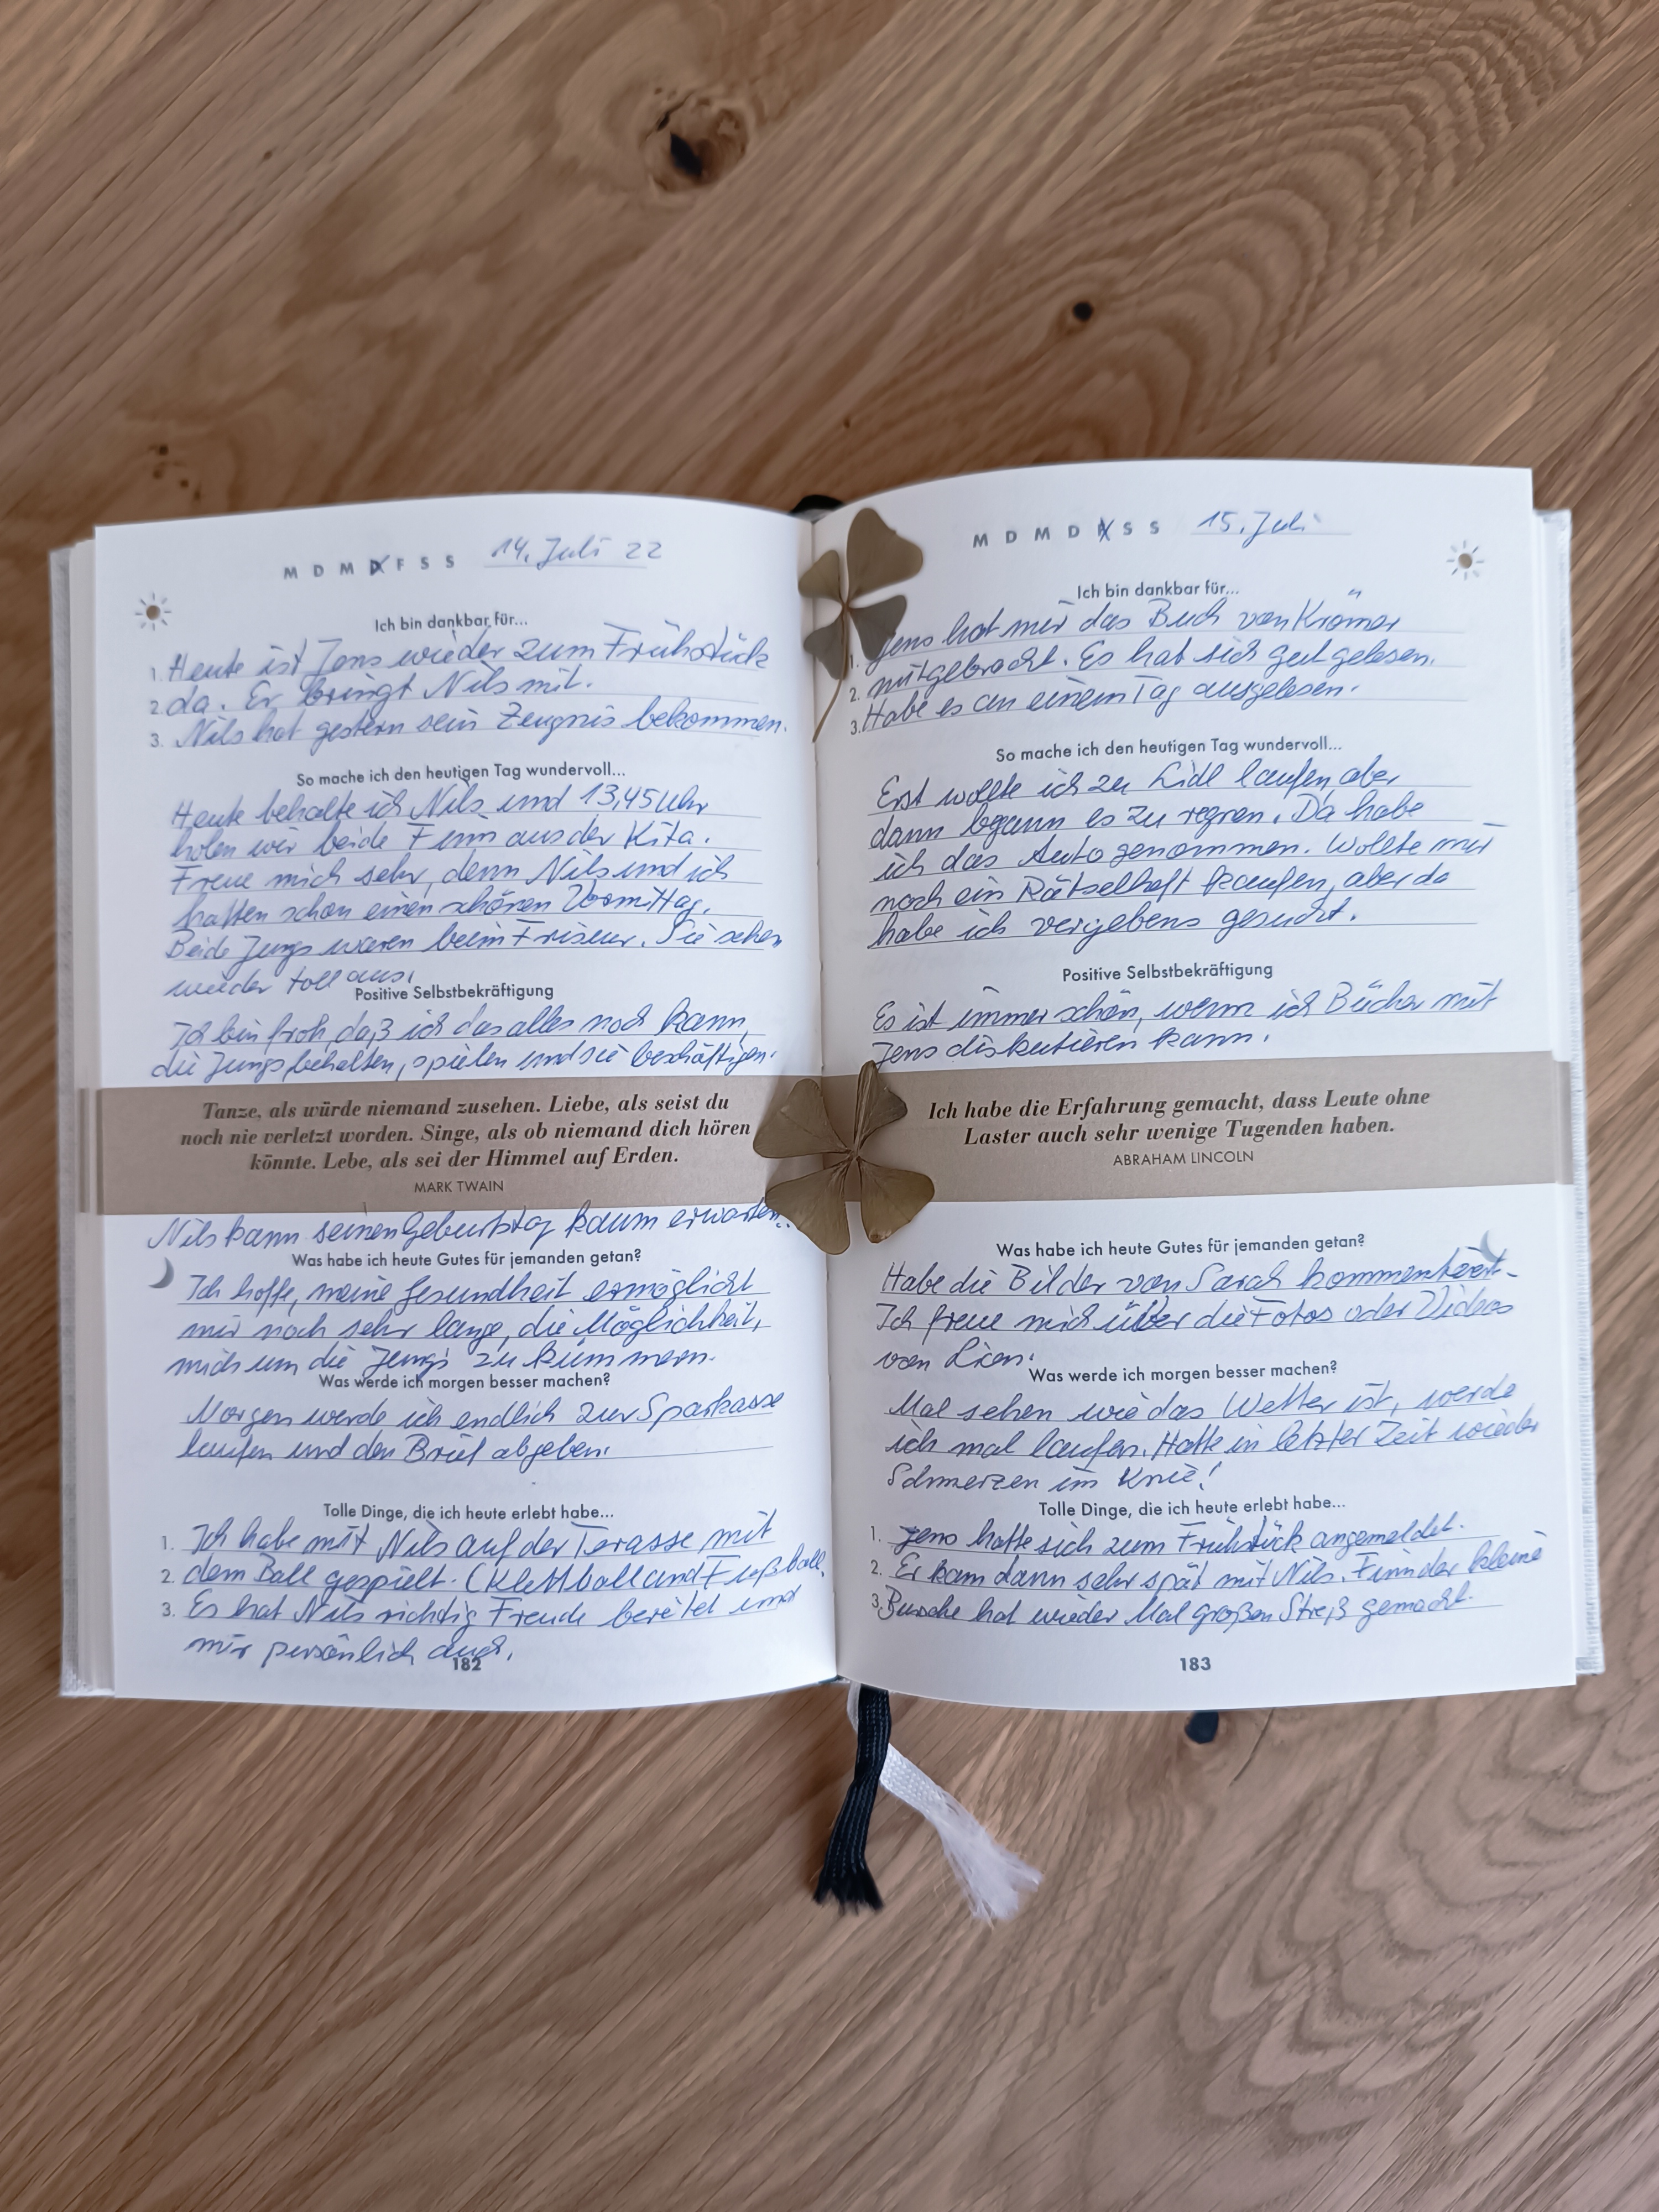 M D M D F S S 14. Juli 22
Ich bin dankbar für...
1. Heute ist Jens wieder zum Frühstück
2. da. Er bringt Nils mit.
3. Nils hat gestern sein Zeugnis bekommen.
So mache ich den heutigen Tag wundervoll...
Heute behalte ich Nils und 13,45 Uhr
holen wir beide Finn aus der Kita.
Freue mich sehr, denn Nils und ich
hatten schon einen schönen Vormittag.
Beide Jungs waren beim Friseur. Sie sehen
wieder toll aus.
Positive Selbstbekräftigung
Ich bin froh, daß ich das alles noch kann,
die Jungs behalten, spielen und sie beschäftigen.
Tanze, als würde niemand zusehen. Liebe, als seist du
noch nie verletzt worden. Singe, als ob niemand dich hören
könnte. Lebe, als sei der Himmel auf Erden.
MARK TWAIN
Nils kann seinen Geburtstag kaum erwarten.
Was habe ich heute Gutes für jemanden getan?
Ich hoffe, meine Gesundheit ermöglicht
mir noch sehr lange, die Möglichkeit,
mich um die Jungs zu kümmern.
Was werde ich morgen besser machen?
Morgen werde ich endlich zur Sparkasse
laufen und den Brief abgeben.
Tolle Dinge, die ich heute erlebt habe...
1. Ich habe mit Nils auf der Terasse mit
2. dem Ball gespielt. (Klettball und Fußball.
3. Es hat Nils richtig Freude bereitet und
mir persönlich auch.
182
M D M D F S S 15. Juli
Ich bin dankbar für...
1. Jens hat mir das Buch von Krömer
2. mitgebracht. Es hat sich gut gelesen.
3. Habe es an einem Tag ausgelesen.
So mache ich den heutigen Tag wundervoll...
Erst wollte ich zu Lidl laufen, aber
dann bgann es zu regnen. Da habe
ich das Auto genommen. Wollte mir
noch ein Rätselheft kaufen, aber da
habe ich vergebens gesucht.
Positive Selbstbekräftigung
Es ist immer schön, wenn ich Bücher mit
Jens diskutieren kann.
Ich habe die Erfahrung gemacht, dass Leute ohne
Laster auch sehr wenige Tugenden haben.
ABRAHAM LINCOLN
Was habe ich heute Gutes für jemanden getan?
Habe die Bilder von Sarah kommentiert.
Ich freue mich über die Fotos oder Videos
von
Was werde ich morgen besser machen?
Mal sehen wie das Wetter ist, werde
ich mal laufen. Hatte in letzter Zeit wieder
Schmerzen im Knie!
Tolle Dinge, die ich heute erlebt habe...
1. Jens hatte sich zum Frühstück angemeldet.
2. Er kam dann sehr spät mit Nils. Finn der kleine
3. hat wieder Mal großen Streß gemacht.
183